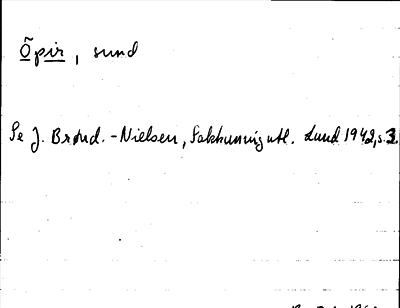 Õpir, sund
Se J. Brønd.-Nielsen, Sakkunnigutl. Lund 1942, s. 3.